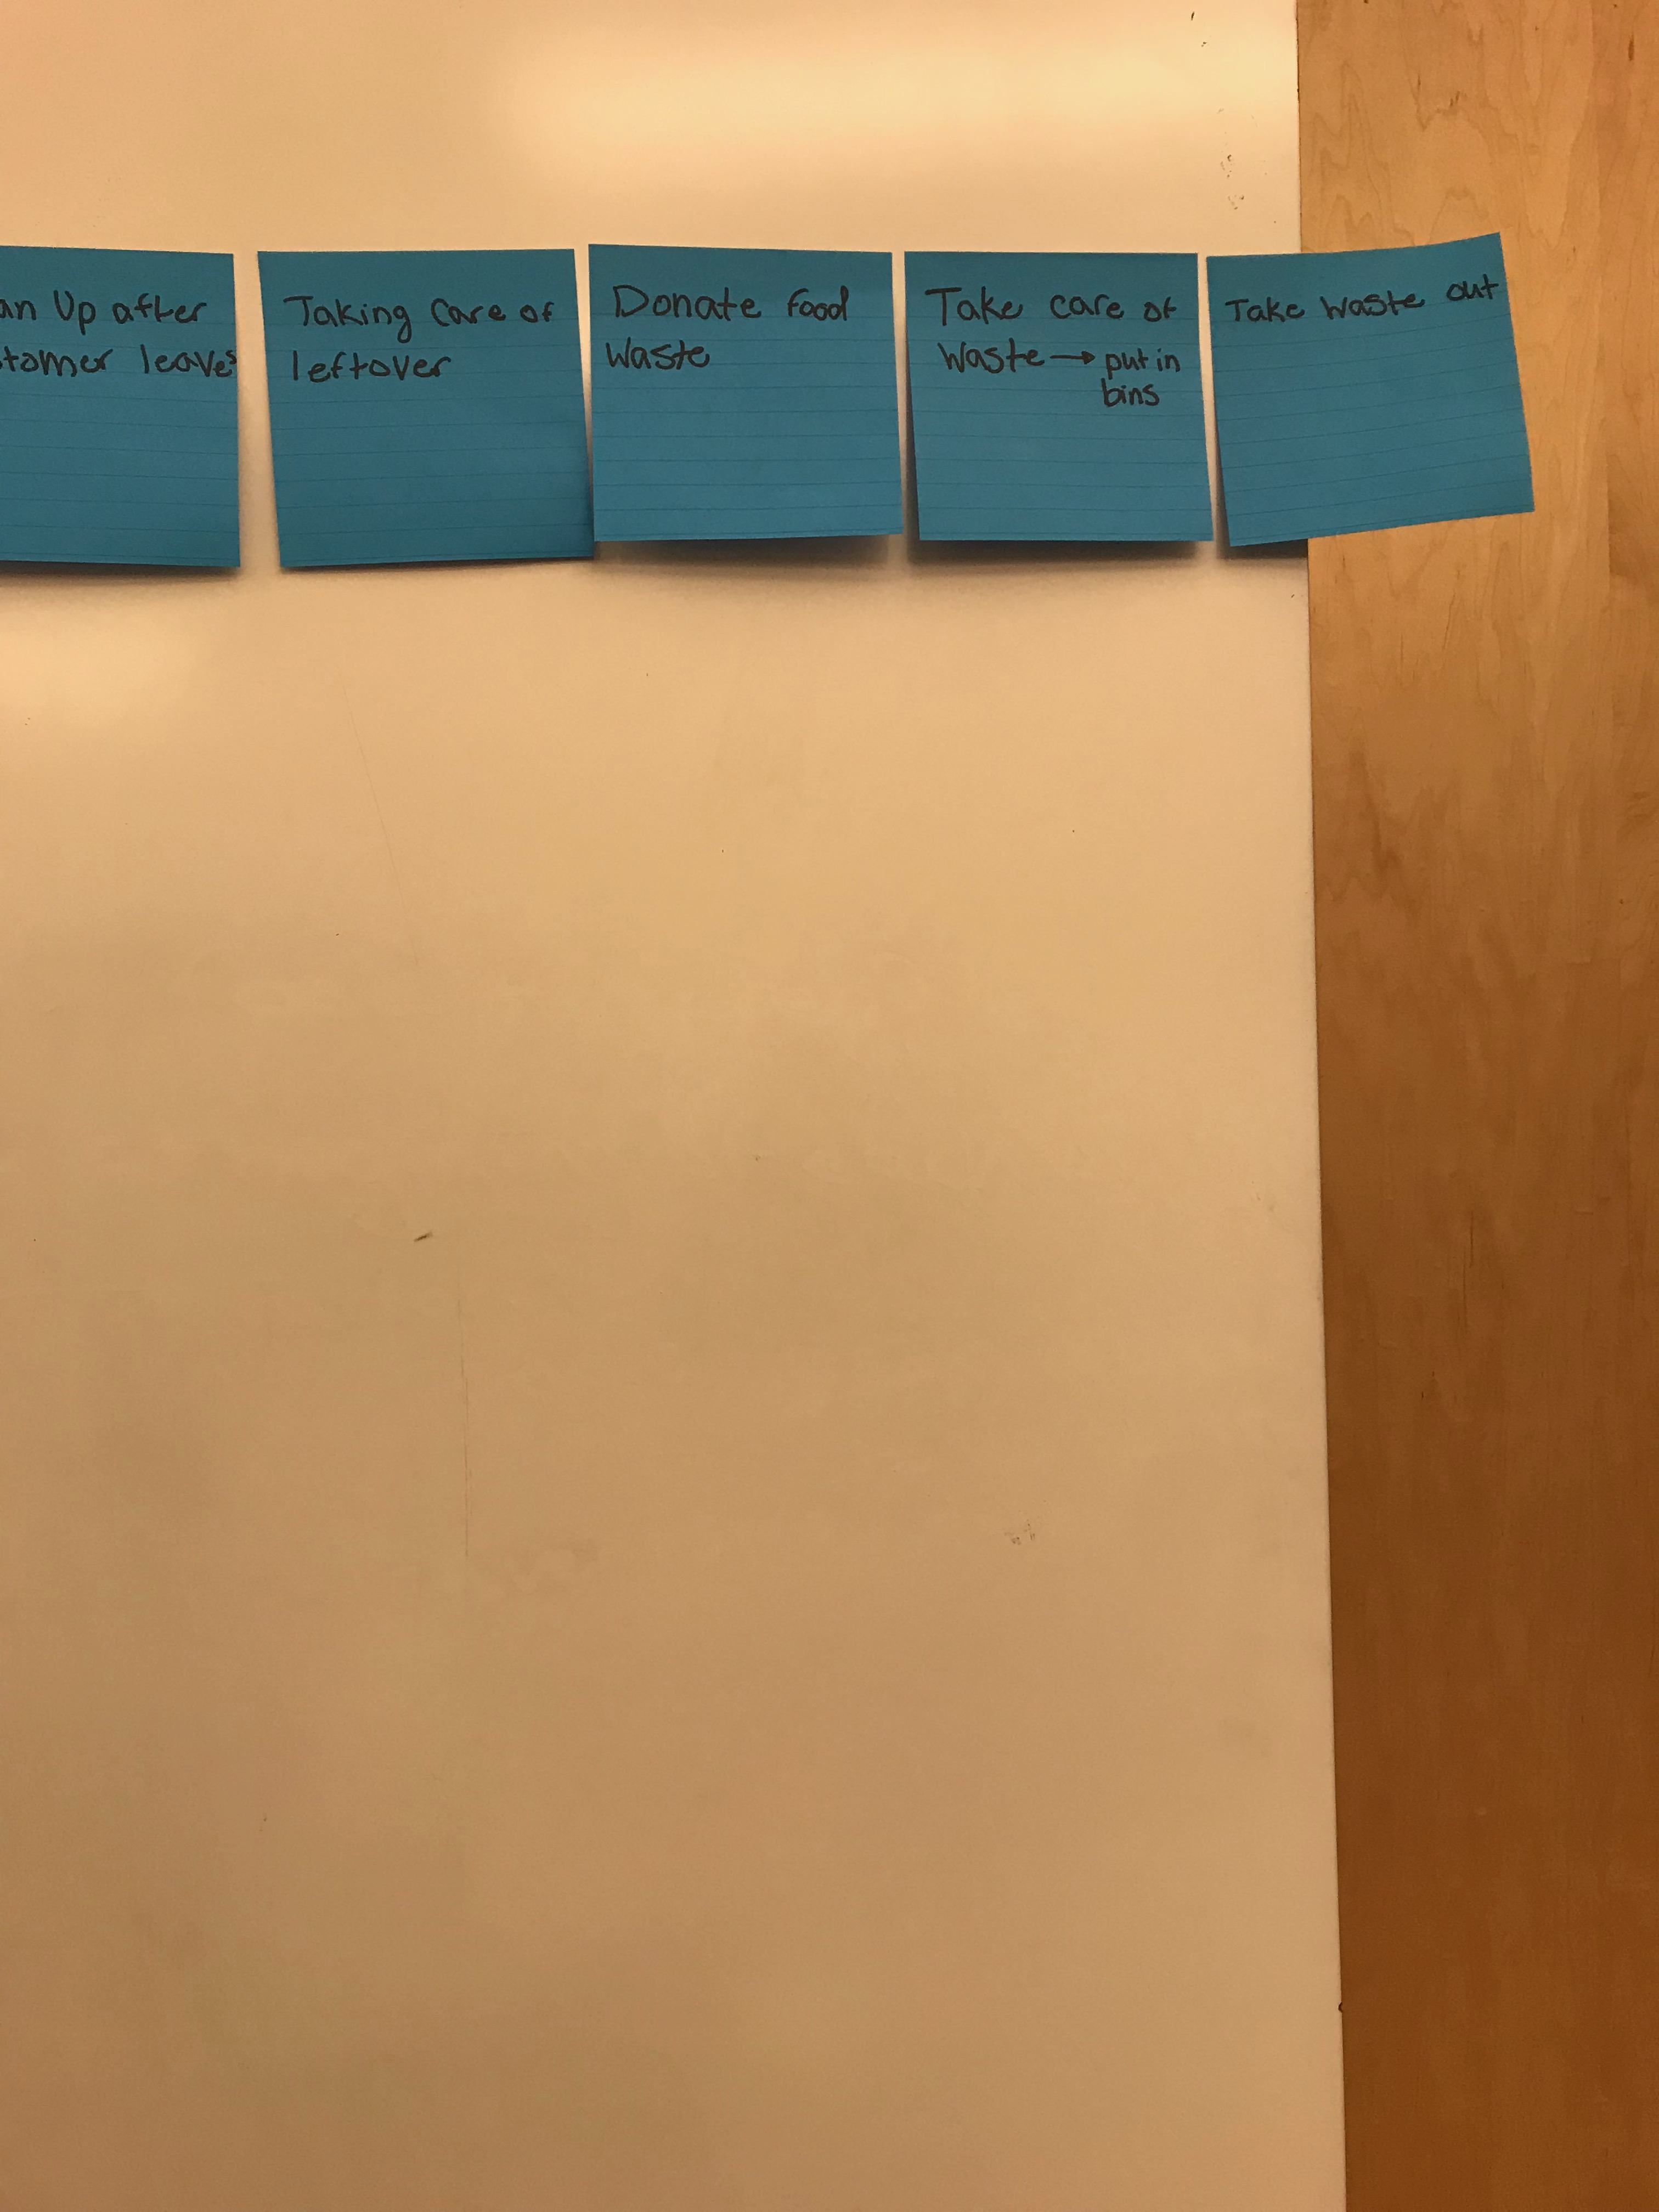 an Up after
tomer leaves
Taking Care of
leftover
Donate food
waste
Take care of
Waste → put in
bins
Take Waste out